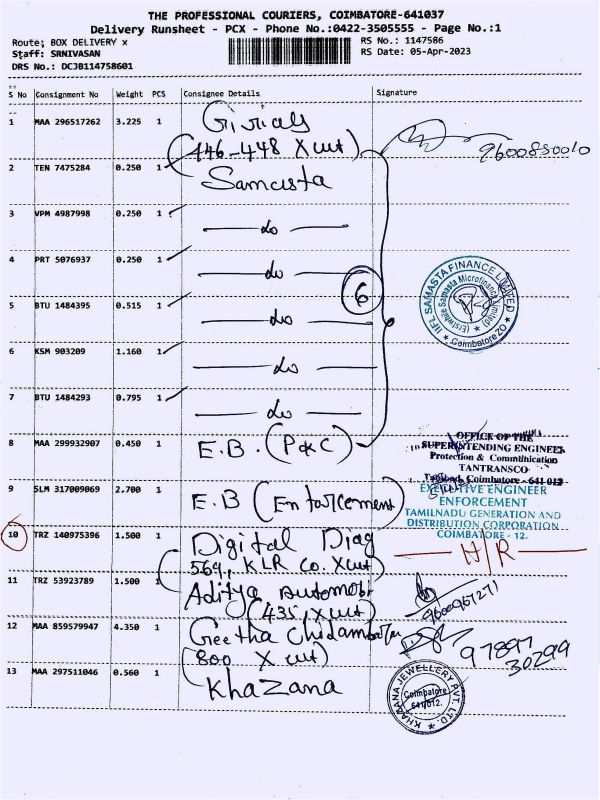 THE PROFESSIONAL COURIERS, COIMBATORE-641037
Delivery Runsheet - PCX - Phone No.:0422-3505555 - Page No.:1
Route; BOX DELIVERY x
RS No.: 1147586
Staff: SRNIVASAN
RS Date: 05-Apr-2023
DRS No.: DCJB114758601
S No Consignment No Weight PCS Consignee Details Signature
1 MAA 296517262 3.225 1 Girias
(446-448 X cut) 9600850010
2 TEN 7475284 0.250 1 Samasta
3 VPM 4987998 0.250 1 — do —
4 PRT 5076937 0.250 1 — do —
6
IIFL SAMASTA FINANCE LIMITED
(Erstwhile Samasta Microfinance Limited)
Coimbatore ZO
5 BTU 1484395 0.515 1 — do —
6 KSM 903209 1.160 1 — do —
7 BTU 1484293 0.795 1 — do —
8 MAA 299932907 0.450 1 E.B. (P&C)
OFFICE OF THE
SUPERINTENDING ENGINEER
Protection & Communication
TANTRANSCO
Coimbatore - 641 012
9 SLM 317009069 2.700 1 E.B (Enforcement)
EXECUTIVE ENGINEER
ENFORCEMENT
TAMILNADU GENERATION AND
DISTRIBUTION CORPORATION
COIMBATORE - 12.
10 TRZ 140975396 1.500 1 Digital Diag
564, KLR Co. X cut) N/R
11 TRZ 53923789 1.500 1 Aditya Automobi
(435, X cut) 9600957271
12 MAA 859579947 4.350 1 Geetha Chidambaram
(800 X cut) 97897
30299
13 MAA 297511046 0.560 1 Khazana
KHAZANA JEWELLERY PVT. LTD.
Coimbatore
641 012.